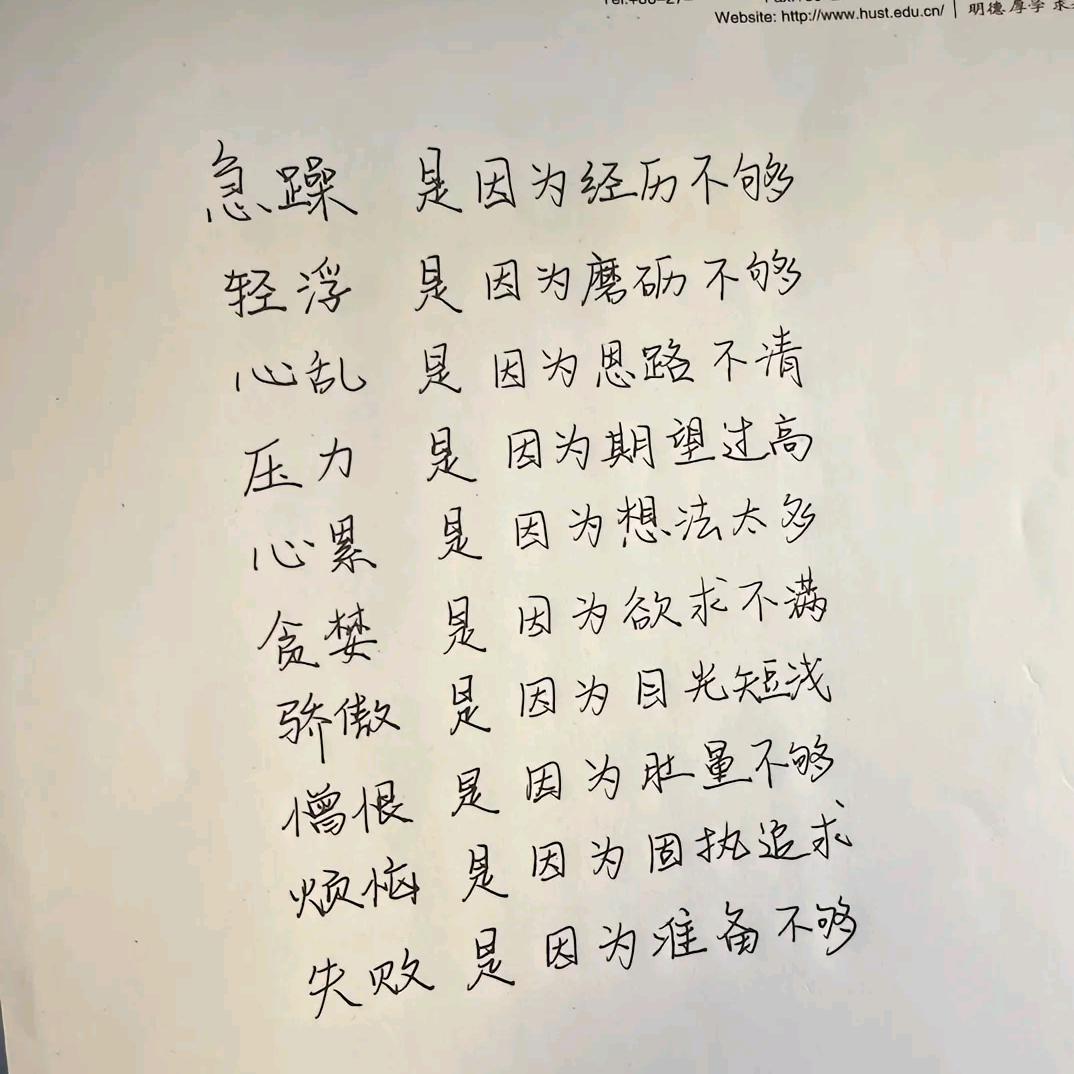 Website: http://www.hust.edu.cn/ | 明德厚学 求
急躁 是因为经历不够
轻浮 是因为磨砺不够
心乱 是因为思路不清
压力 是因为期望过高
心累 是因为想法太多
贪婪 是因为欲求不满
骄傲 是因为目光短浅
憎恨 是因为肚量不够
烦恼 是因为固执追求
失败 是因为准备不够